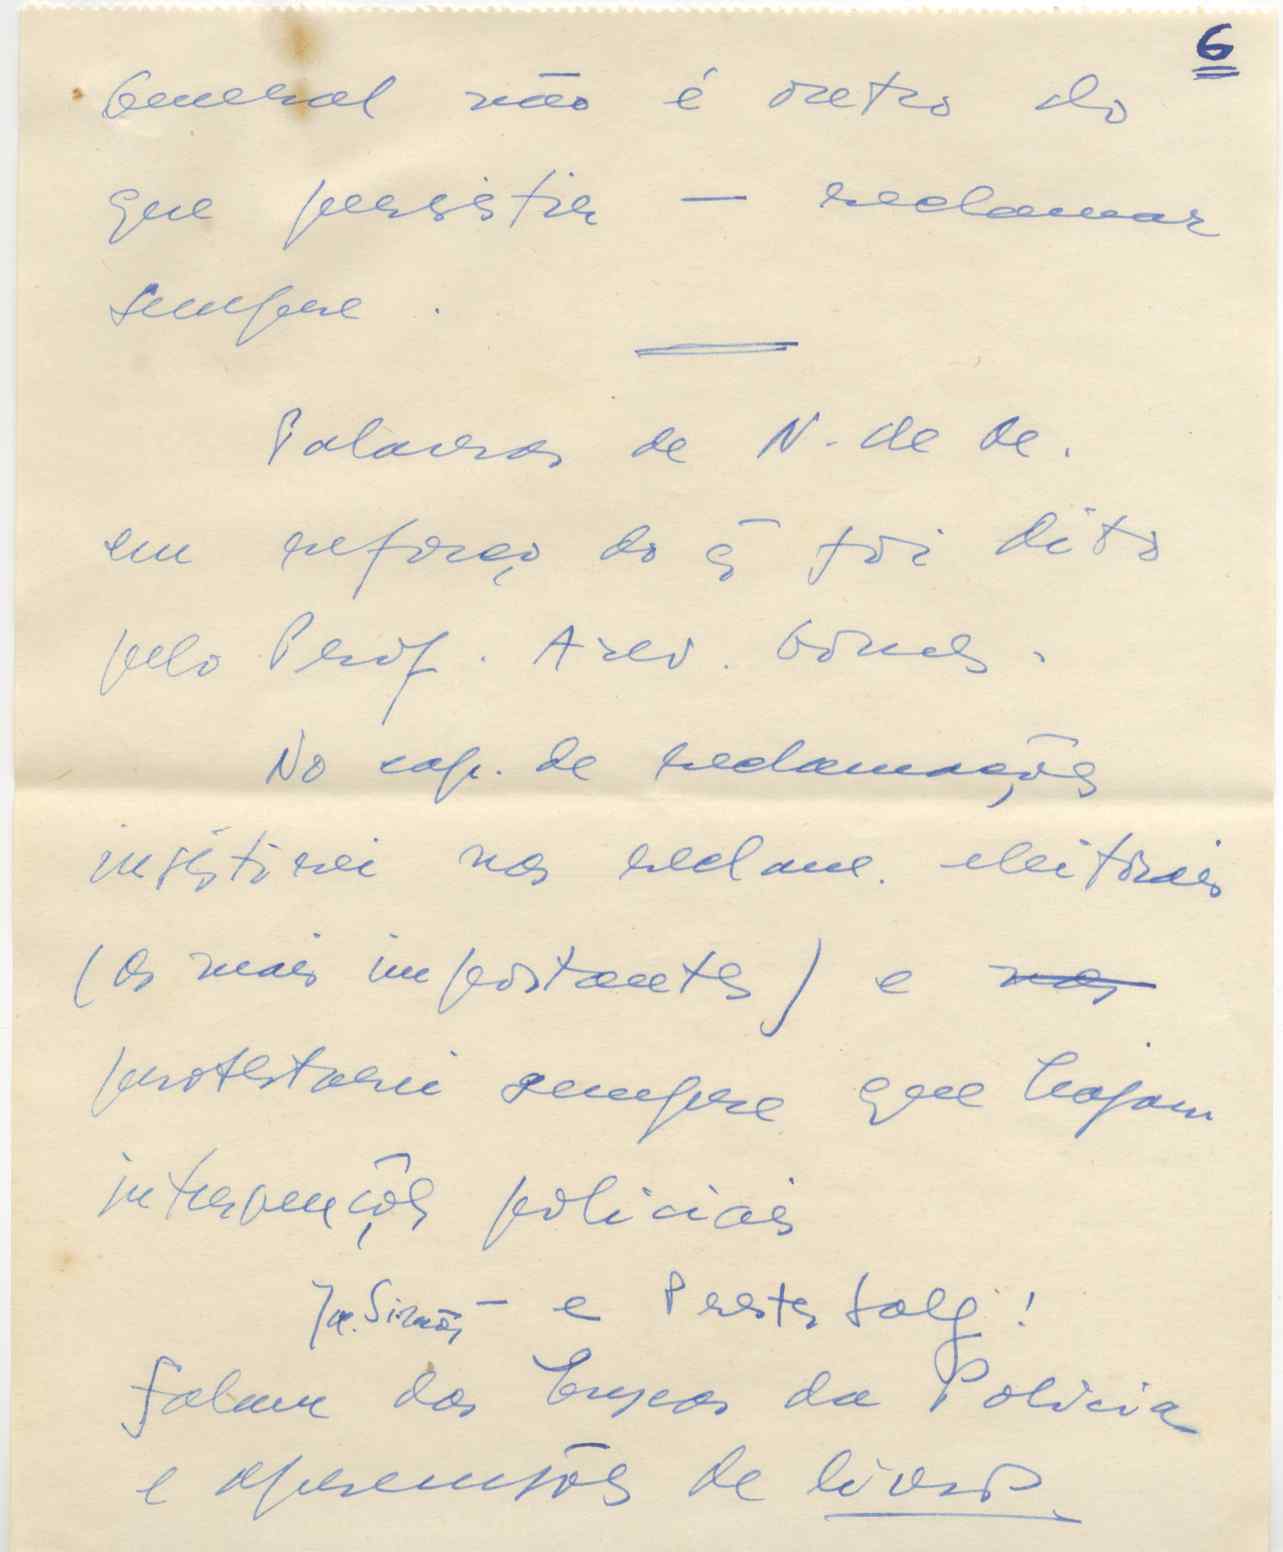 6
General não é outro do
que persistir — reclamar
sempre.
Palavras de N. de De.
em reforço do q̄ foi dito
pelo Prof. Azev. Gomes.
No cap. de reclamações
insistirei nas reclam. eleitorais
(as mais importantes) e nas
protestarei sempre que hajam
intervenções policiais
Simões — e Prestes Salg!
falam das buscas da Policia
e apreensões de livros.